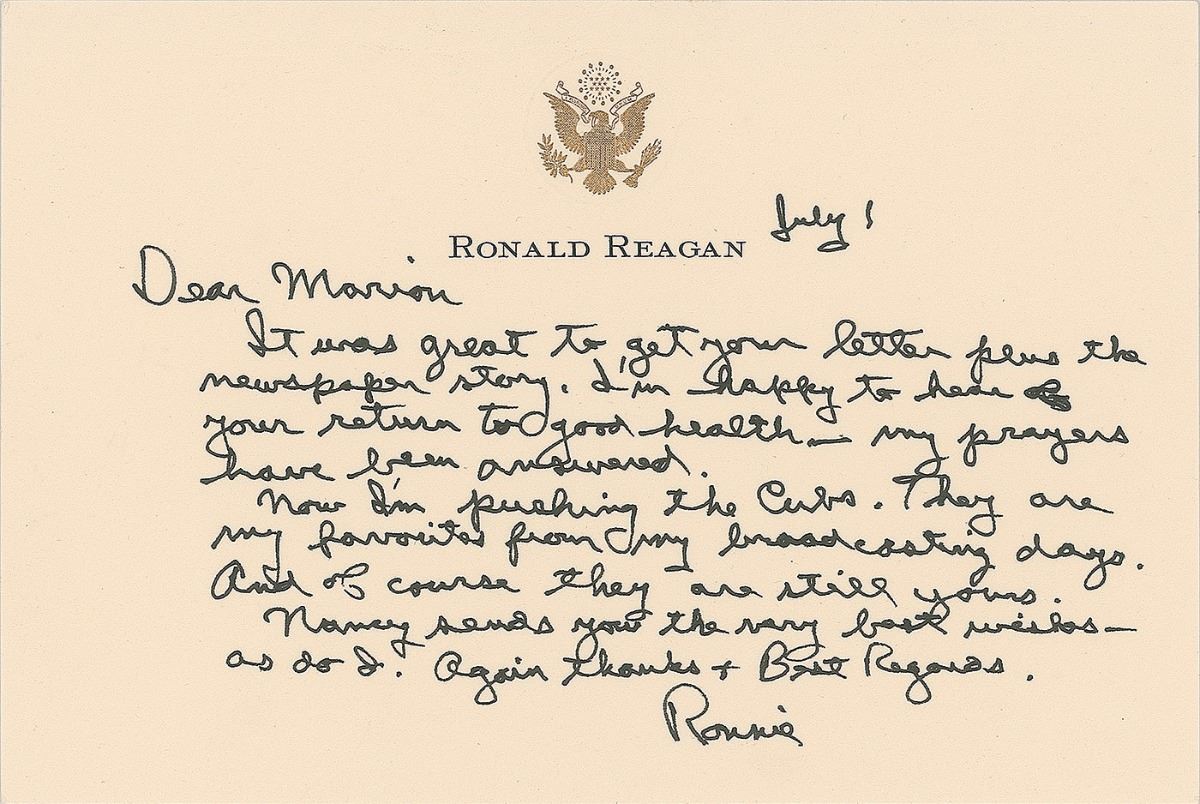 July 1
RONALD REAGAN
Dear Marion
It was great to get your letter plus the
newspaper story. I'm happy to hear of
your return to good health — my prayers
have been answered.
Now I'm pushing the Cubs. They are
my favorites from my broadcasting days.
And of course they are still yours.
Nancy sends you the very best wishes —
as do I. Again thanks + Best Regards.
Ronnie